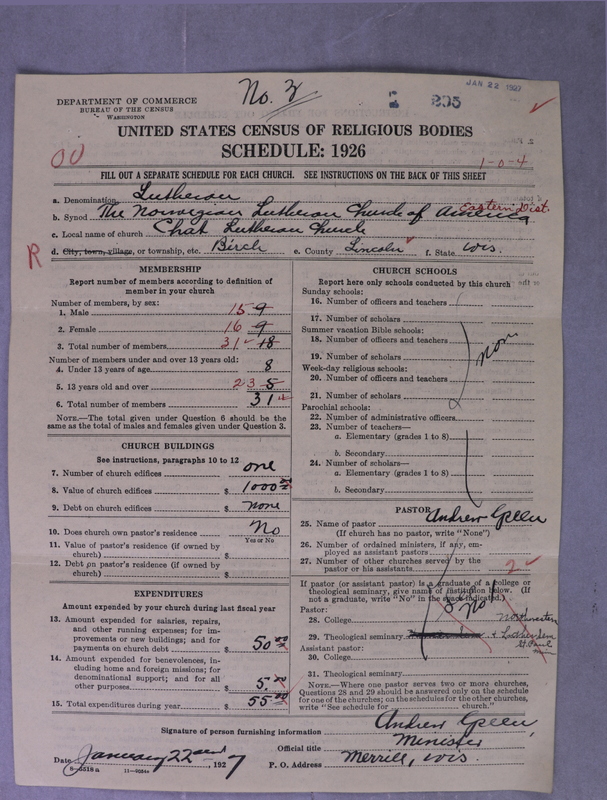 JAN 22 1927
No. 3
205
DEPARTMENT OF COMMERCE
BUREAU OF THE CENSUS
WASHINGTON
UNITED STATES CENSUS OF RELIGIOUS BODIES
SCHEDULE: 1926
1-0-4
FILL OUT A SEPARATE SCHEDULE FOR EACH CHURCH. SEE INSTRUCTIONS ON THE BACK OF THIS SHEET
a. Denomination Lutheran
b. Synod The Norwegian Lutheran Church of America Eastern Dist.
c. Local name of church Chat Lutheran Church
R d. City, town, village, or township, etc. Birch e. County Lincoln f. State Wis.
MEMBERSHIP
Report number of members according to definition of
member in your church
Number of members, by sex:
1. Male 15 9
2. Female 16 9
3. Total number of members 31 18
Number of members under and over 13 years old:
4. Under 13 years of age 8
5. 13 years old and over 23 8
6. Total number of members 31
NOTE.—The total given under Question 6 should be
same as the total of males and females given under Question 3.
CHURCH BUILDINGS
See instructions, paragraphs 10 to 12
7. Number of church edifices one
8. Value of church edifices $ 1000 00
9. Debt on church edifices $ none
10. Does church own pastor's residence No
Yes or No
11. Value of pastor's residence (if owned by
church) $
12. Debt on pastor's residence (if owned by
church) $
EXPENDITURES
Amount expended by your church during last fiscal year
13. Amount expended for salaries, repairs,
and other running expenses; for im-
provements or new buildings; and for
payments on church debt $ 50 00
14. Amount expended for benevolences, in-
cluding home and foreign missions; for
denominational support; and for all
other purposes $ 5.00
15. Total expenditures during year $ 55 00
CHURCH SCHOOLS
Report here only schools conducted by this church
Sunday schools:
16. Number of officers and teachers
17. Number of scholars
Summer vacation Bible schools:
18. Number of officers and teachers
19. Number of scholars
none
Week-day religious schools:
20. Number of officers and teachers
21. Number of scholars
Parochial schools:
22. Number of administrative officers
23. Number of teachers—
a. Elementary (grades 1 to 8)
b. Secondary
24. Number of scholars—
a. Elementary (grades 1 to 8)
b. Secondary
PASTOR
25. Name of pastor Andrew Green
(If church has no pastor, write "None")
26. Number of ordained ministers, if any, em-
ployed as assistant pastors
27. Number of other churches served by the
pastor or his assistants 2
If pastor (or assistant pastor) is a graduate of a college or
theological seminary, give name of institution below. (If
not a graduate, write "No" in the space indicated.)
Pastor:
28. College
29. Theological seminary + Luther Sem
St. Paul
Assistant pastor:
30. College
31. Theological seminary
NOTE.—Where one pastor serves two or more churches,
Questions 28 and 29 should be answered only on the schedule
for one of the churches; on the schedules for the other churches,
write "See schedule for church."
Signature of person furnishing information Andrew Green,
Official title Minister
Date January 22nd, 1927 P. O. Address Merrill, Wis.
8—5518 a